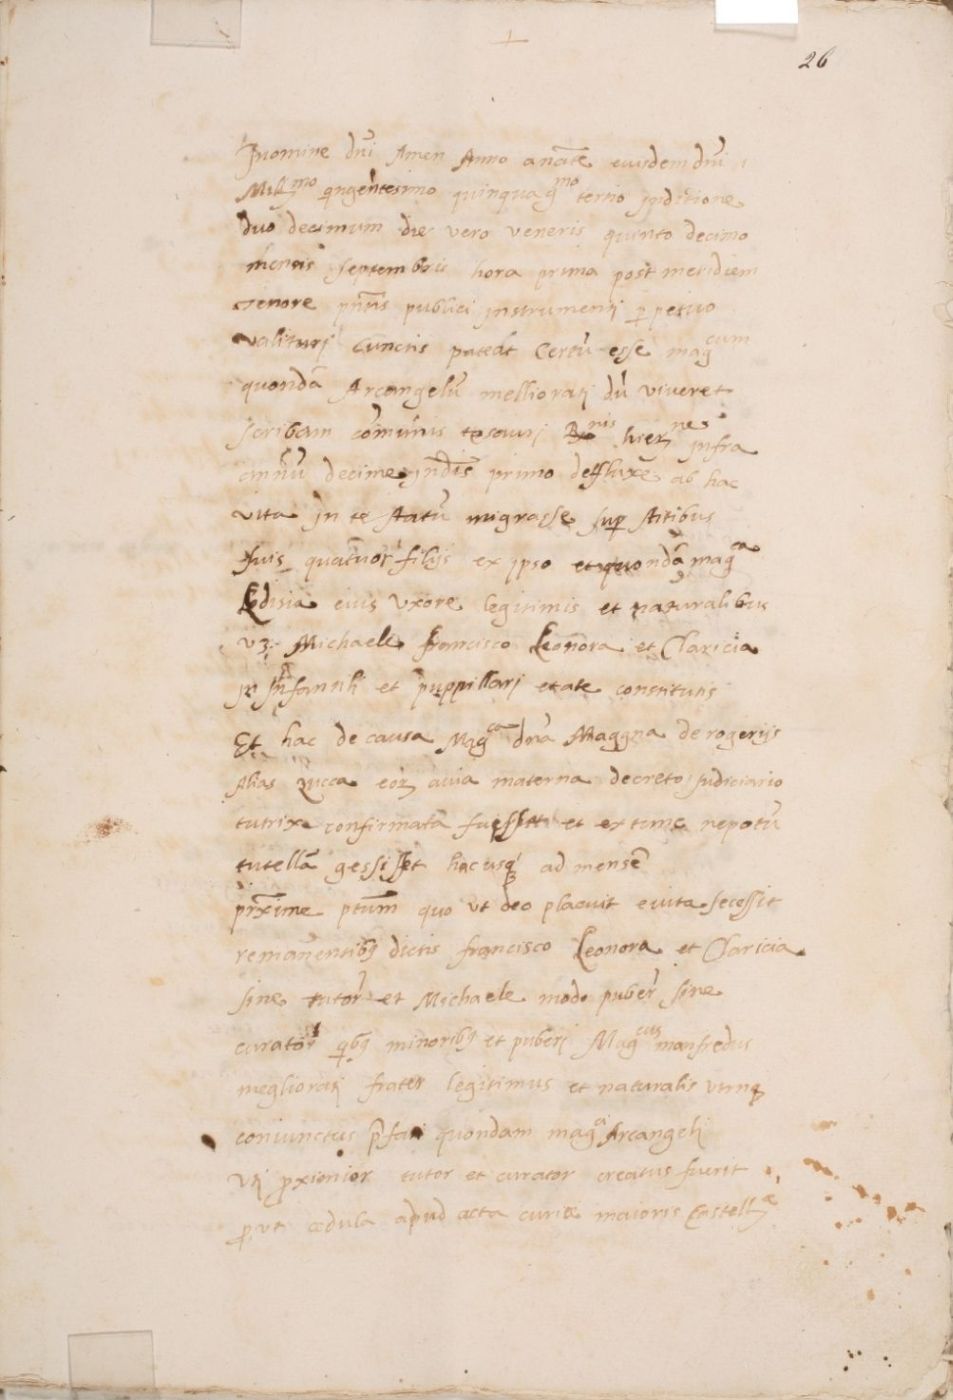 26
In nomine dnī Amen Anno a nāte eiusdem dnī
Mill^mo qngentesimo quinquag^mo tertio Inditione
duo decimum die vero veneris quinto decimo
mensis septembris hora prima post meridiem
Tenore pñtis publici Instrumenti p petuo
valituri Cunctis pateat Certū esse mag^cum
quondā Arcangelū melliorati dū viveret
scribam cōmunis tesauri infra
annū decime Indis primo defluxe ab hac
vita In te statū migrasse sup stitibus
suis quatuor filijs ex ipso et quondā mag^ca
Edisia eius Uxore legitimis et naturalibus
vz. Michaele francisco Leonora et Claricia
In Infantili et puppillari etate constitutis
Et hac de causa Mag^ca dnā Maggna de rogerijs
Alias Zucca eoz avia materna decreto Iudiciario
tutrix confirmata fuissitti et ex tunc nepotū
tutellā gessisset hac usq ad mensē
prxime ptum quo ut deo placuit e vita secessit
remanentibq dictis francisco Leonora et Claricia
sine tutor et Michaele modo puber sine
curator qbq minoribq et puberi Mag^cus manfredus
megliorati frater legitimus et naturalis utrinq
coniunctus p fati quondam mag^ci Arcangeli
Uti proximior tutor et curator creatus fuerit
p ut cedula apud acta curiæ maioris Castell^æ